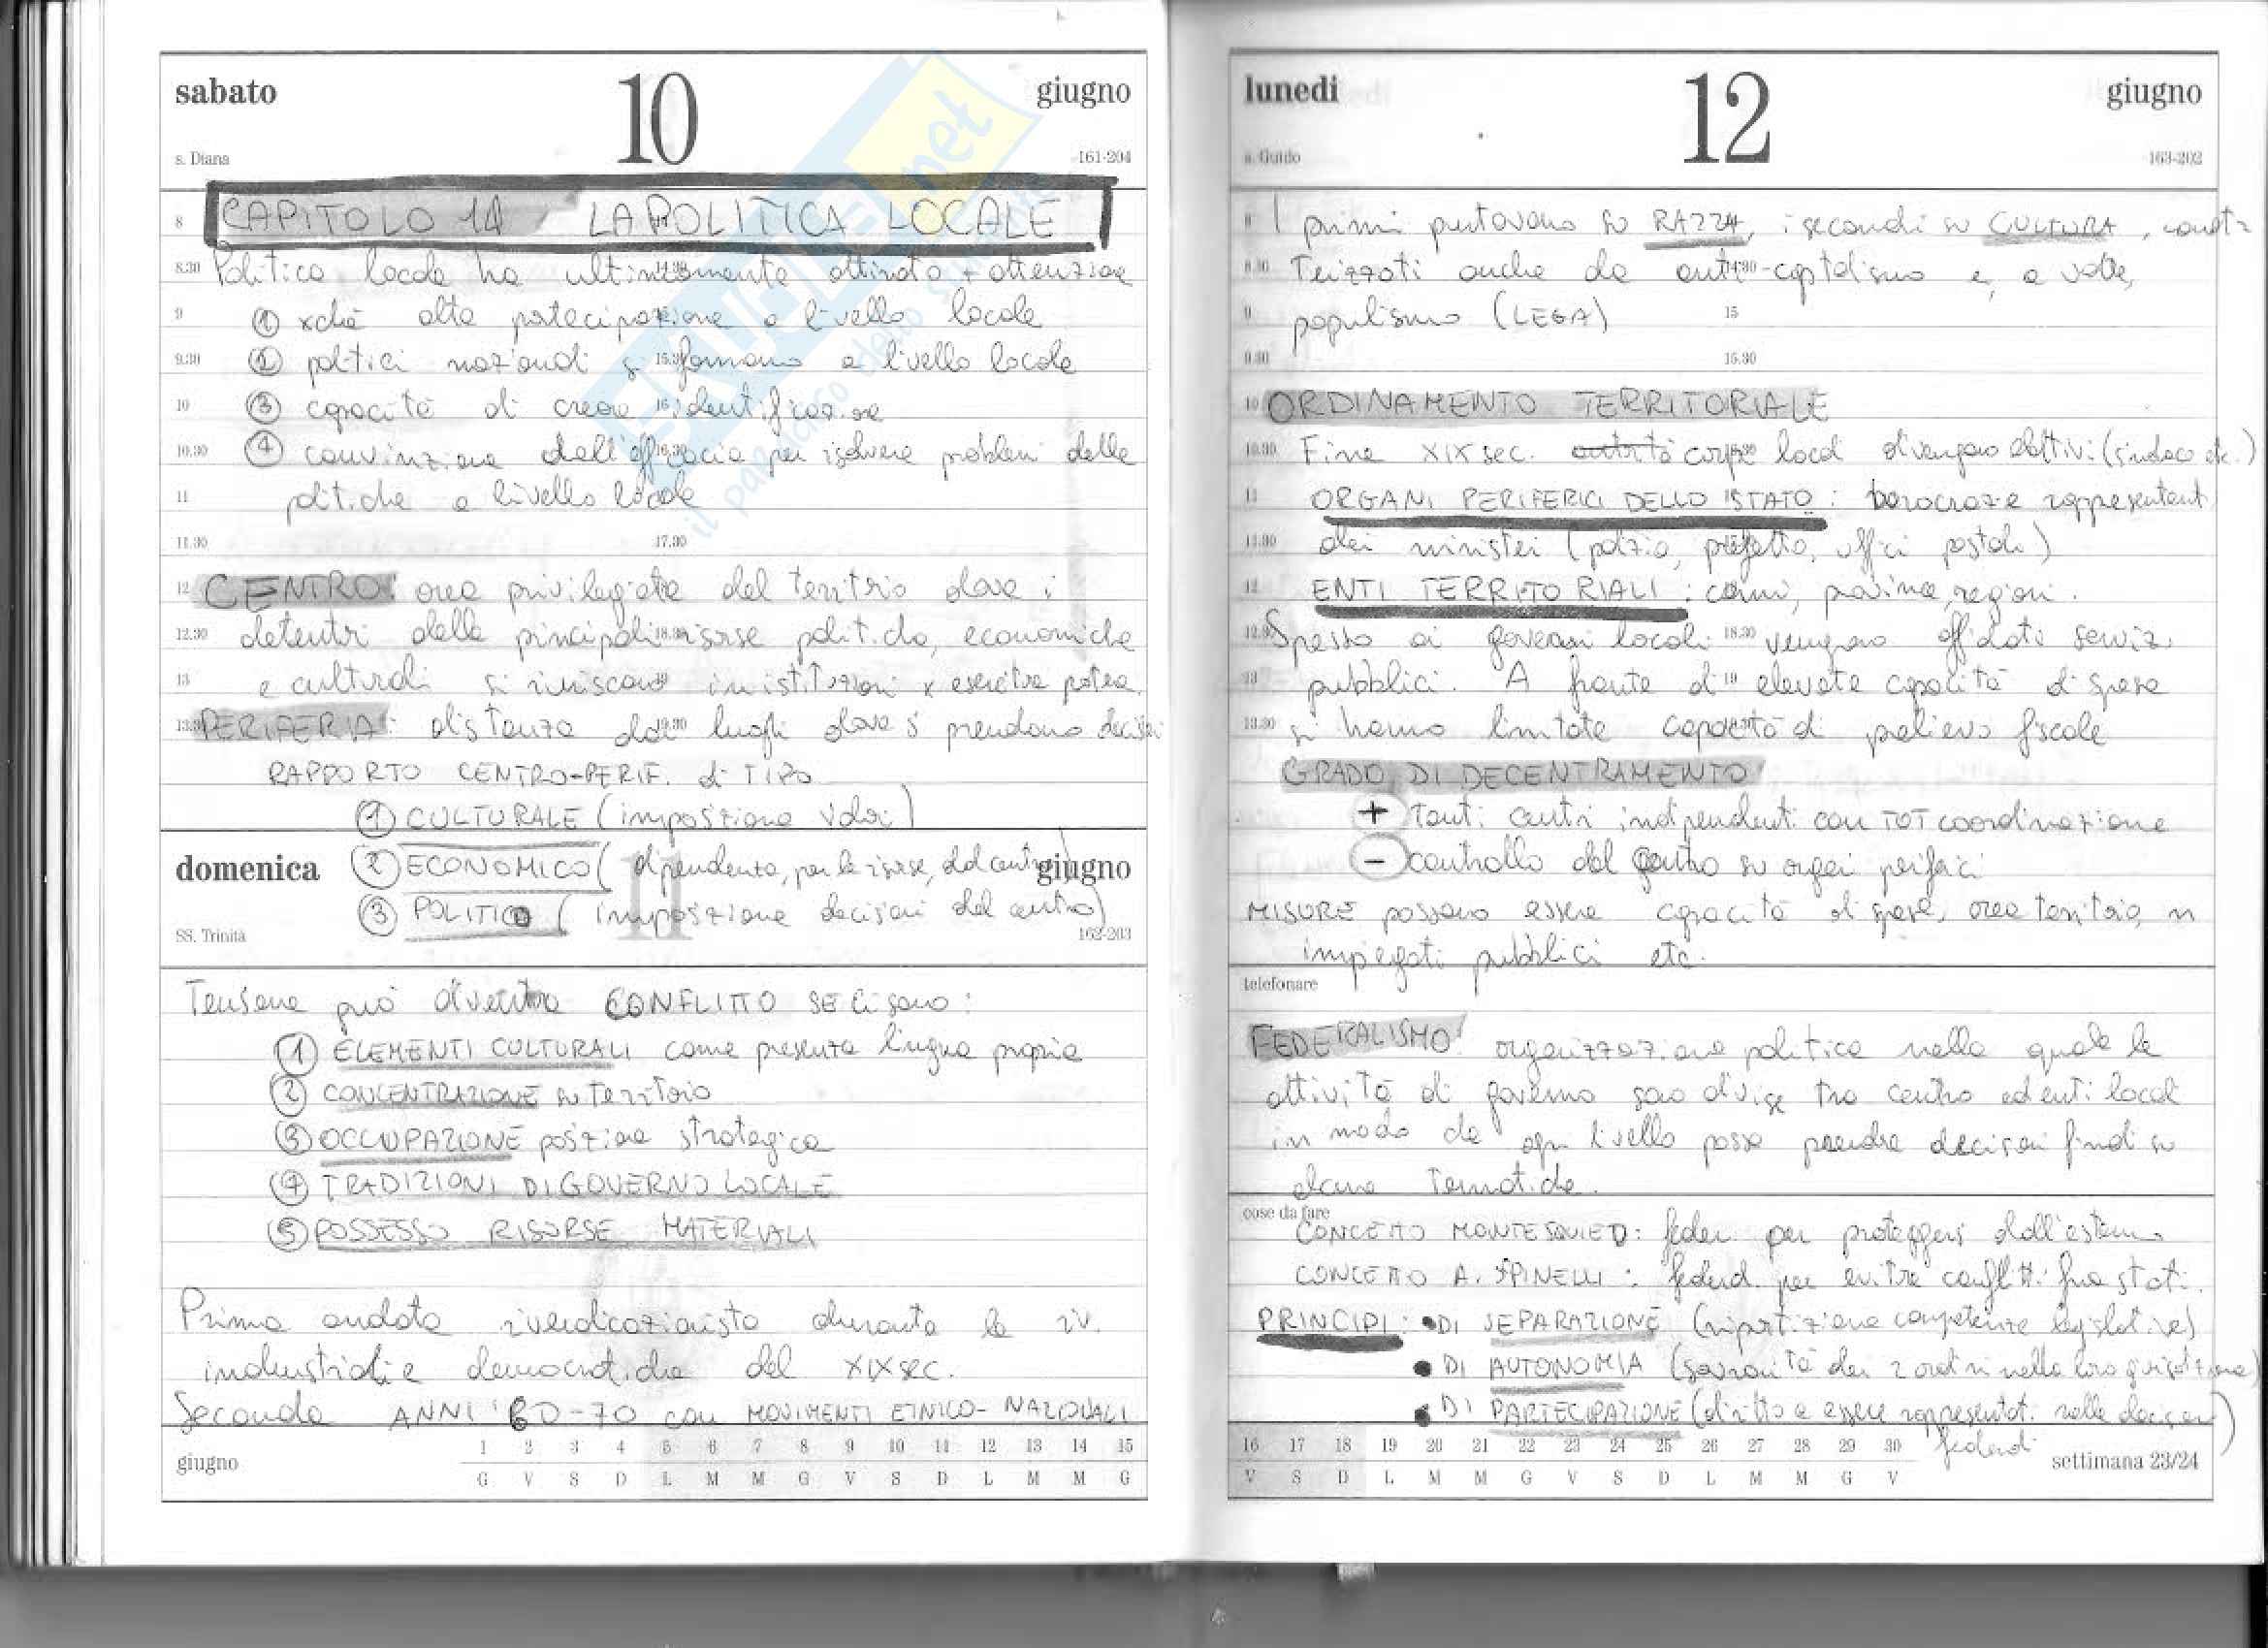 sabato 10 giugno
s. Diana 161-204
8 CAPITOLO 14 LA POLITICA LOCALE
8.30 Politica locale ha ultimamente attirato + attenzione
9 ① xché alta partecipazione a livello locale
9.30 ② politici nazionali si 15.30 formano a livello locale
10 ③ capacità di creare 16 identificazione
10.30 ④ convinzione dell'efficacia per risolvere problemi delle
11 politiche a livello locale
11.30 17.30
12 CENTRO: area privilegiata del territorio dove i
12.30 detentori delle principali 18.30 risorse politiche, economiche
13 e culturali si riuniscono in istituzioni x esercitare potere.
13.30 PERIFERIA: distanza dai 19.30 luoghi dove si prendono decisioni
RAPPORTO CENTRO-PERIF. di TIPO
① CULTURALE (imposizione valori)
domenica 11 giugno
② ECONOMICO (dipendenza, per le risorse, dal centro)
③ POLITICO (imposizione decisioni dal centro)
SS. Trinità 162-203
Tensione può diventare CONFLITTO SE ci sono:
① ELEMENTI CULTURALI come presenza lingua propria
② CONCENTRAZIONE su territorio
③ OCCUPAZIONE posizione strategica
④ TRADIZIONI DI GOVERNO LOCALE
⑤ POSSESSO RISORSE MATERIALI
Prima ondata rivendicazionista durante le riv.
industriali e democratiche del XIX sec.
Seconda ANNI '60-70 con MOVIMENTI ETNICO-NAZIONALI
giugno 1 2 3 4 5 6 7 8 9 10 11 12 13 14 15
G V S D L M M G V S D L M M G
lunedì 12 giugno
s. Guido 163-202
8 I primi puntavano su RAZZA, i secondi su CULTURA, carat-
8.30 Terizzati anche da anti-14.30 capitalismo e, a volte,
9 populismo (LEGA) 15
9.30 15.30
10 ORDINAMENTO TERRITORIALE
10.30 Fine XIX sec. locali divengono elettivi (sindaco etc.)
11 ORGANI PERIFERICI DELLO STATO: burocrazie rappresentanti
11.30 dei ministeri (polizia, prefetto, uffici postali)
12 ENTI TERRITORIALI: comuni, province, regioni.
12.30 Spesso ai governi locali 18.30 vengono affidati servizi
13 pubblici. A fronte di 19 elevate capacità di spesa
13.30 si hanno limitate capacità di prelievo fiscale
GRADO DI DECENTRAMENTO
+ tanti centri indipendenti con TOT coordinazione
- controllo del centro su organi periferici
MISURE possono essere capacità di spesa, area territorio, n
impiegati pubblici etc.
telefonare
FEDERALISMO: organizzazione politica nella quale le
attività di governo sono divise tra centro ed enti locali
in modo che ogni livello possa prendere decisioni finali su
alcune Tematiche.
cose da fare
CONCETTO MONTESQUIEU: feder. per proteggersi dall'esterno
CONCETTO A. SPINELLI: federal. per evitare conflitti fra stati.
PRINCIPI: • DI SEPARAZIONE (ripartizione competenze legislative)
• DI AUTONOMIA (sovranità dei 2 ordini nella loro giurisdizione)
• DI PARTECIPAZIONE (diritto a essere rappresentati nelle decisioni
federali)
16 17 18 19 20 21 22 23 24 25 26 27 28 29 30 settimana 23/24
V S D L M M G V S D L M M G V